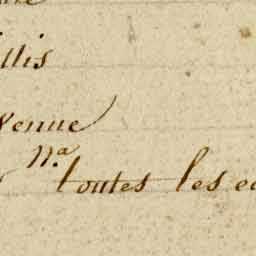 llis
venue
n.a
toutes les ea